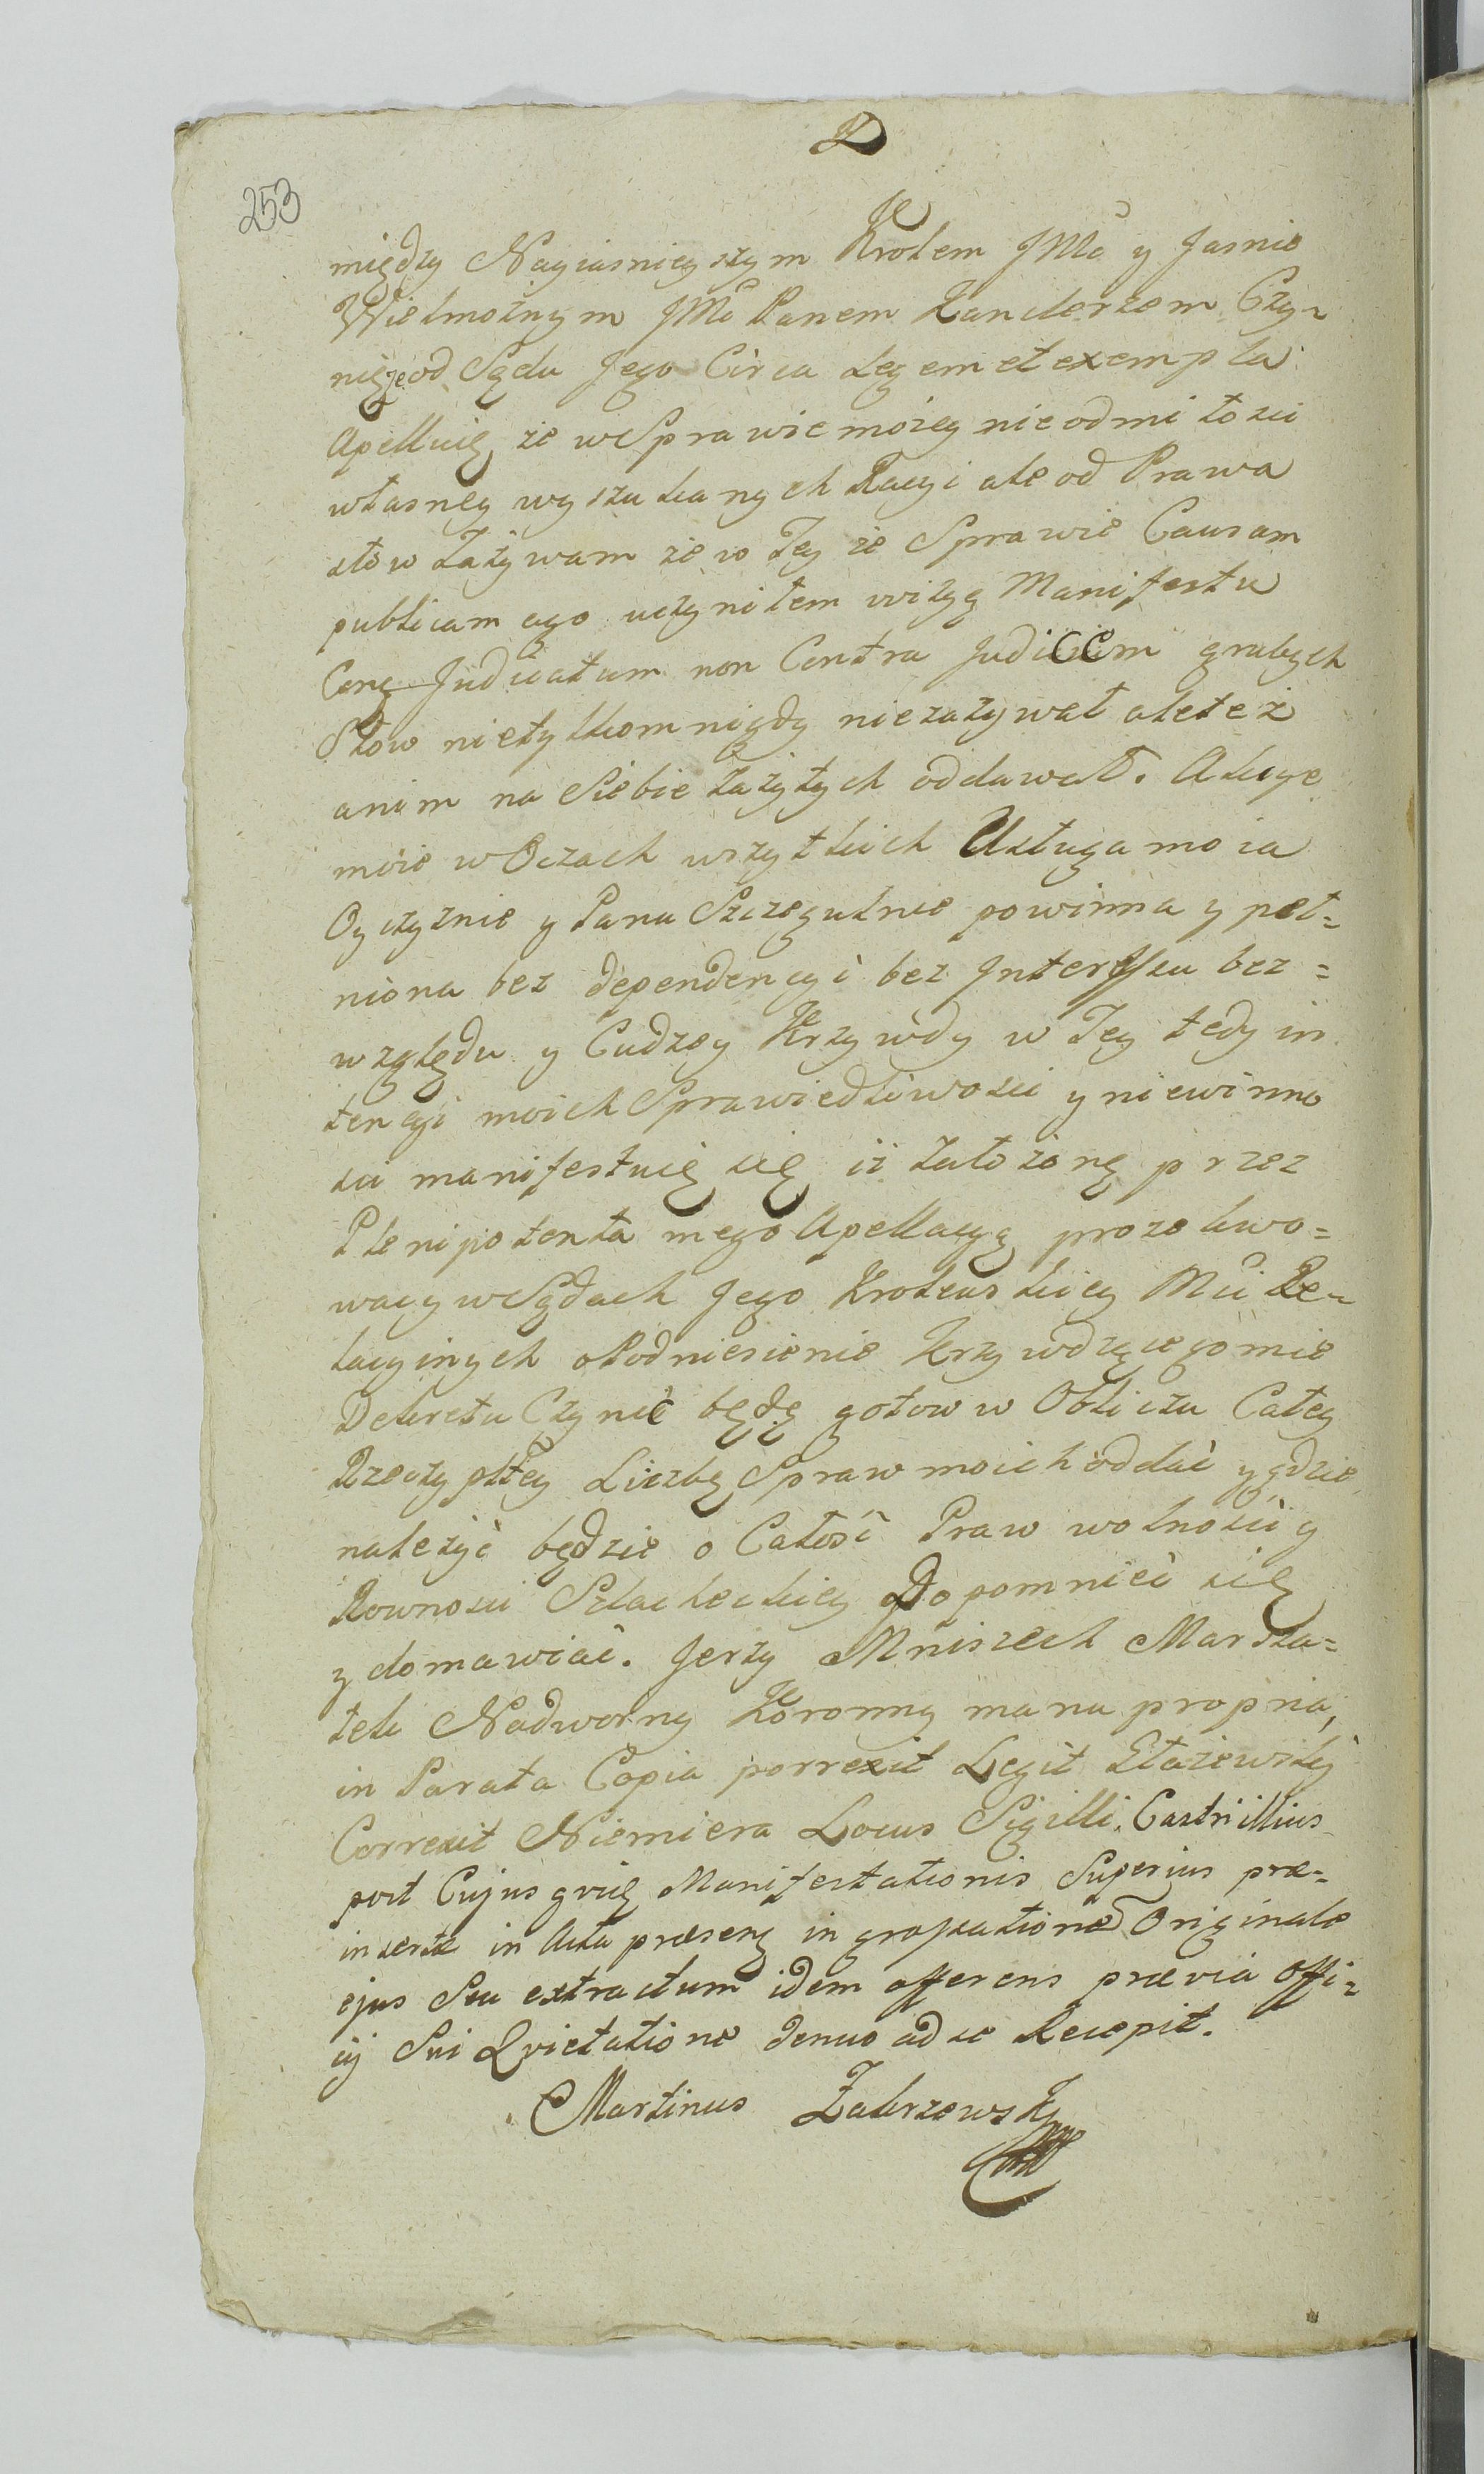 D
253
między Nayiasnieyszym Krolem JMć y Jasnie
Wielmożnym JMć Panem Kanclerzem Czy=
nię że od Sądu Jego Circa Legem et exempla
Apelluię, że w Sprawie moiey nie od mitosci
własney wyszukanych Racyi ale od Prawa
słow Zażywam że w Tey że Sprawie Causam
publicam ago uczyniłem wizyą Manifestu
Contra Judicatum non Contra Judicem grubych
Słow nietylkom nigdy niezażywał ale też
anim na Siebie zażytych oddawał. Akcye
moie w Oczach wszytkich Usługa moia
Oyczyznie y Panu Szczegulnie powinna y peł=
niona bez dependencyi bez Interessu bez=
względu y Cudzey Krzywdy w Tey tedy in
tencyi moich Sprawiedliwosci y niewinno
sci manifestuię się iż założoną przez
Plenipotenta mego Apellacyą prozekwo=
wac y w Sądach Jego Krolewskiey Mci Re=
lacyinych o Podniesienie Krzywdzącego mie
Dekretu Czynić będę gotow w Obliczu Całey
Rzeczypltey Liczbę Spraw moich oddać y gdzie
należyć będzie o Całość Praw wolności y
Rownosci Szlacheckiey Dopomnieć się
y domawiać. Jerzy Mniszech Marsza=
łek Nadworny Koronny manu propria,
in Parata Copia porrexit Legit Staiewski
Correxit Niemiera Locus Sigilli. Castri illius
post Cujus qvidē Manifestationis Superius præ=
insertæ in Acta præsenā ingrossationē Originale
ejus Seu extractum idem offerens prævia offi=
cij Sui Qvietatione denuo ad se Recepit.
Martinus Zakrzewski